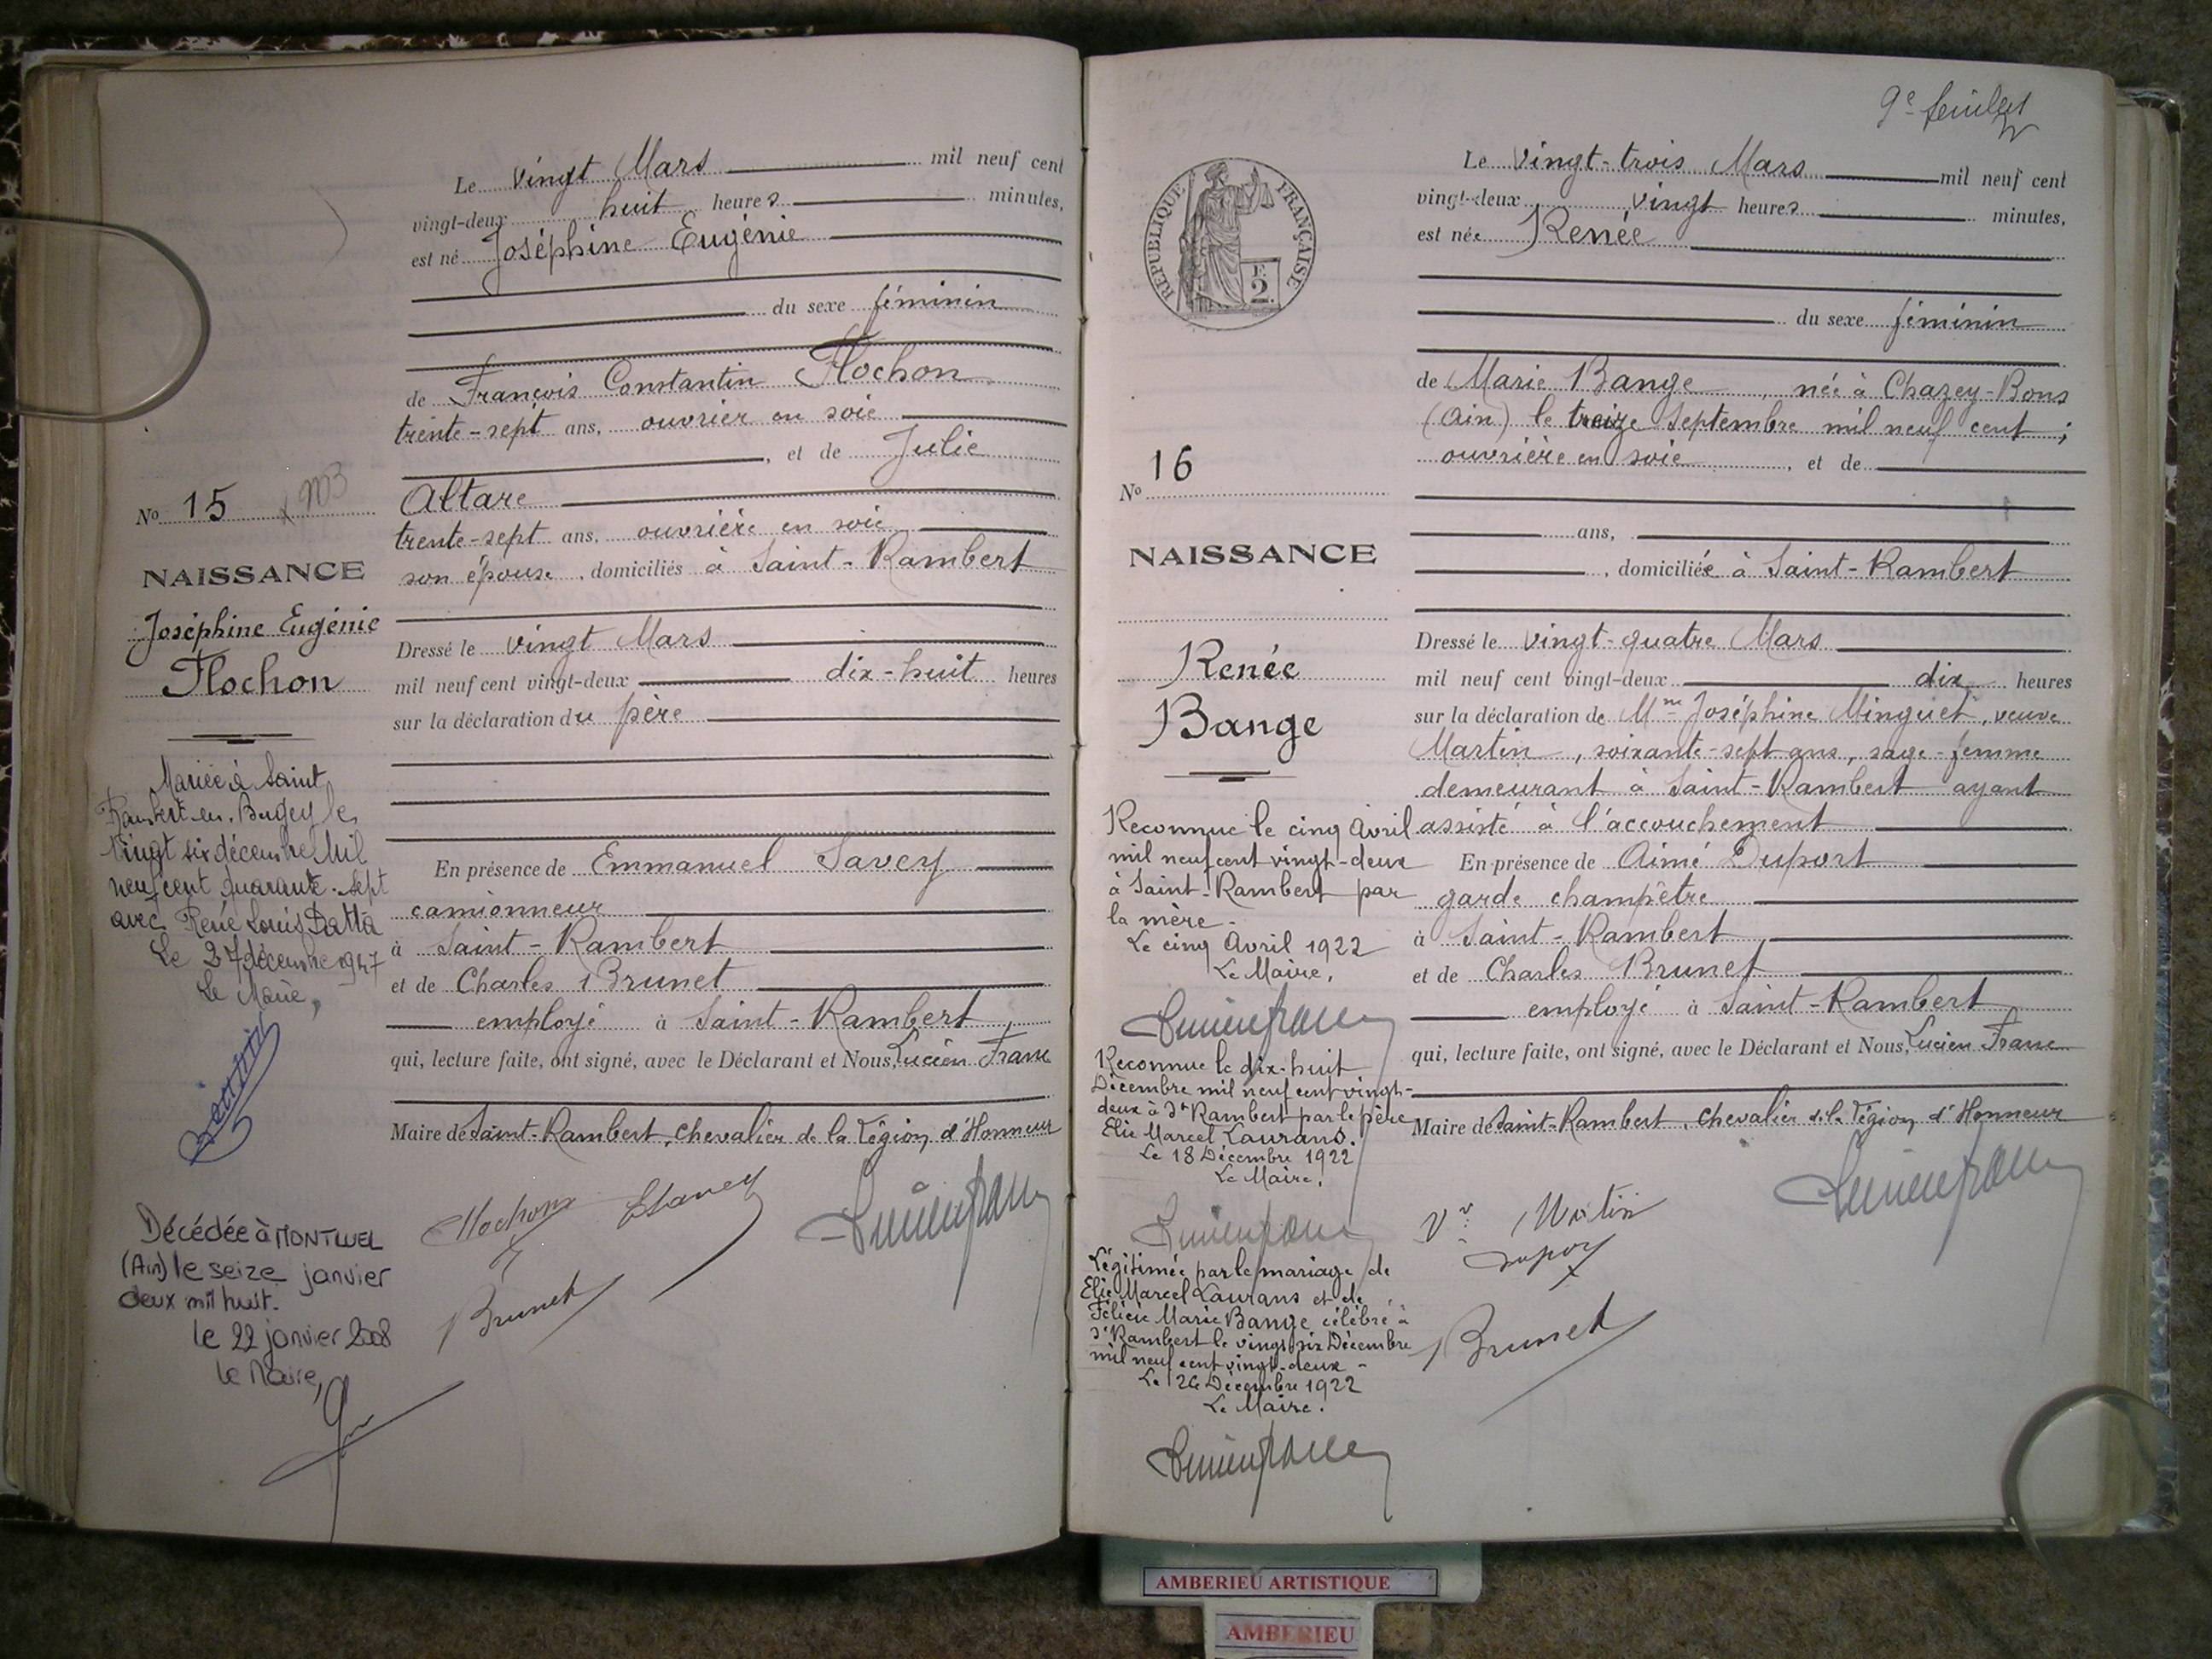 Le vingt Mars mil neuf cent
vingt-deux huit heures minutes,
est né Joséphine Eugénie
du sexe féminin
de François Constantin Flochon
trente-sept ans, ouvrier en soie
, et de Julie
Altare
trente-sept ans, ouvrière en soie
son épouse, domiciliés à Saint-Rambert
Dressé le vingt Mars
mil neuf cent vingt-deux dix-huit heures
sur la déclaration du père
En présence de Emmanuel Savey
camionneur
à Saint-Rambert
et de Charles Brunet
employé à Saint-Rambert,
qui, lecture faite, ont signé, avec le Déclarant et Nous, Lucien Franc
Maire de Saint-Rambert, chevalier de la Légion d'Honneur
Flochon
Brunet
No 15
NAISSANCE
Joséphine Eugénie
Flochon
Mariée à Saint
Rambert-en-Bugey le
vingt six décembre mil
neuf cent quarante-sept
avec René Louis Datta
Le 27 décembre 1947
Le Maire,
Décédée à MONTLUEL
(Ain) le seize janvier
deux mil huit.
le 22 janvier 2008
le Maire,
9e feuillet
RÉPUBLIQUE FRANÇAISE
F.
2.
Le vingt-trois Mars mil neuf cent
vingt-deux vingt heures minutes,
est née Renée
du sexe féminin
de Marie Bange, née à Chazey-Bons
(Ain) le treize Septembre mil neuf cent;
ouvrière en soie, et de
ans,
, domiciliée à Saint-Rambert
Dressé le vingt-quatre Mars
mil neuf cent vingt-deux dix heures
sur la déclaration de Mme Joséphine Minguet, veuve
Martin, soixante-sept ans, sage-femme
demeurant à Saint-Rambert ayant
assisté à l'accouchement
En présence de Aimé Duport
garde champêtre
à Saint-Rambert
et de Charles Brunet
employé à Saint-Rambert
qui, lecture faite, ont signé, avec le Déclarant et Nous, Lucien Franc
Maire de Saint-Rambert, chevalier de la Légion d'Honneur
Vve Martin
Duport
Brunet
No 16
NAISSANCE
Renée
Bange
Reconnue le cinq Avril
mil neuf cent vingt-deux
à Saint-Rambert par
la mère -
Le cinq Avril 1922
Le Maire,
Lucien Franc
Reconnue le dix-huit
Décembre mil neuf cent vingt-
deux à St Rambert par le père
Elie Marcel Laurans.
Le 18 Décembre 1922
Le Maire,
Lucien Franc
Légitimée par le mariage de
Elie Marcel Laurans et de
Félicie Marie Bange célébré à
St Rambert le vingt six Décembre
mil neuf cent vingt-deux -
Le 26 Décembre 1922
Le Maire.
Lucien Franc
AMBERIEU ARTISTIQUE
AMBERIEU